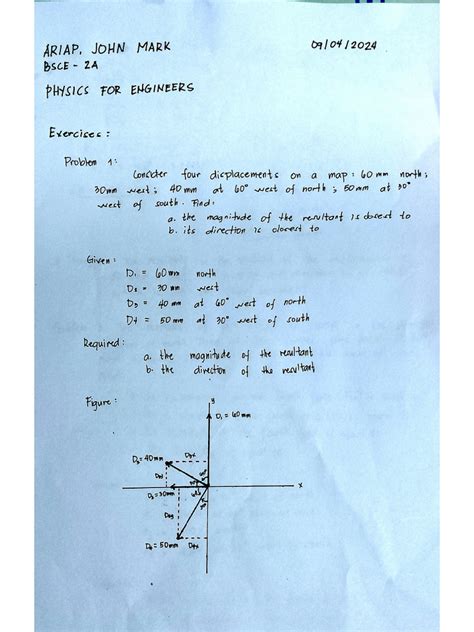 ARIAP, JOHN MARK 09/04/2024
BSCE - 2A
PHYSICS FOR ENGINEERS
Exercises :
Problem 1:
Consider four displacements on a map : 60 mm north ;
30mm west ; 40 mm at 60° west of north ; 50 mm at 30°
west of south . Find :
a. the magnitude of the resultant is closest to
b. its direction is closest to
Given :
D₁ = 60 mm north
D₂ = 30 mm west
D₃ = 40 mm at 60° west of north
D4 = 50 mm at 30° west of south
Required :
a. the magnitude of the resultant
b. the direction of the resultant
Figure :
y
D₁ = 60 mm
D₃ = 40mm D₃x
x
D₂ = 30mm
D₄y
D₄ = 50mm D₄x